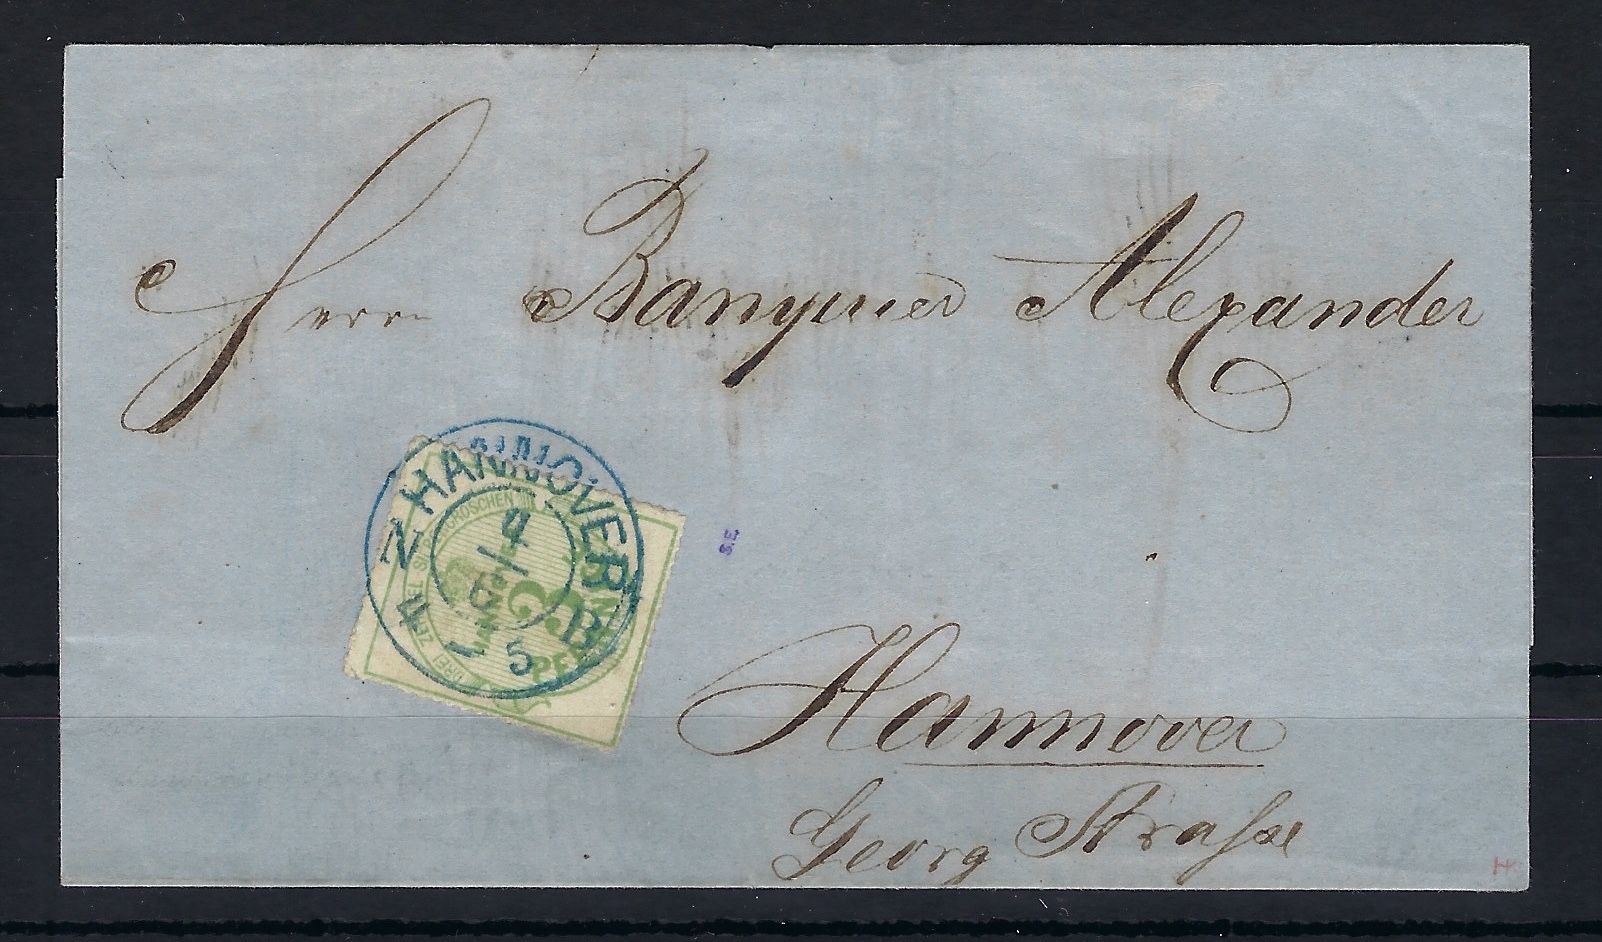 Herrn Banquier Alexander
HANNOVER
4
6
N
B
5
GROSCHEN
3
PFENN
S.E.
Hannover
Georg Straſse
H